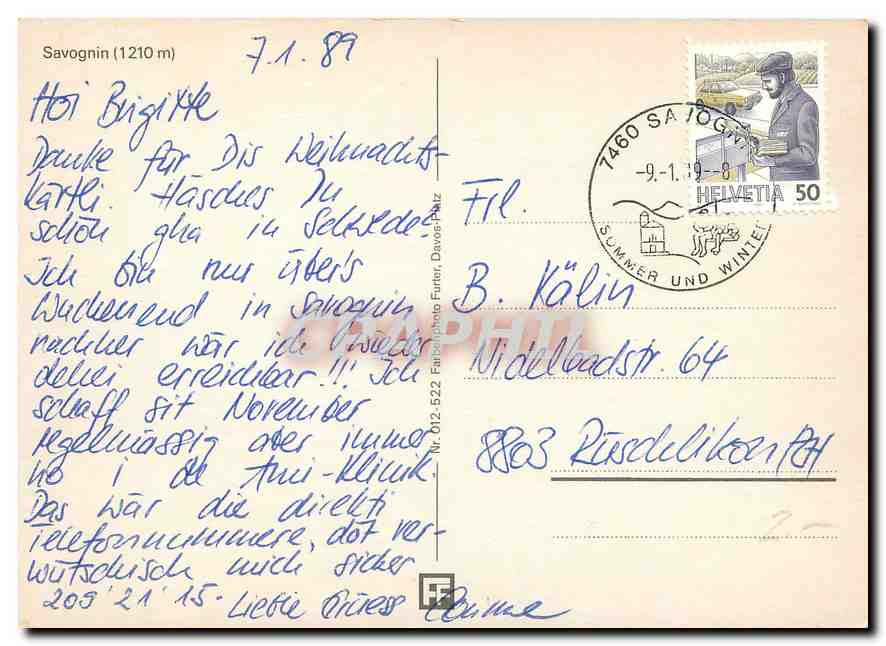 Savognin (1210 m)
7.1.89
Hoi Brigitte
Danke für Dis Weihnachts-
kärtli. Häsches Du
schön gha in Schwede?
Ich bin nur über's
Wuchenend in Savognin
nachher wär ich wieder
dehei erreichbar!!! Ich
schaff sit November
regelmässig aber immer
no i de Ami-Klinik.
Das wär die direkti
Telefonnummere, döt ver-
wütschisch mich sicher
209'21'15. Liebe Grüess
Nr. 012-522 Farbenphoto Furter, Davos-Platz
FF
7460 SAVOGNIN
-9.-1.89--8
SUMMER UND WINTER
HELVETIA 50
Frl.
B. Kälin
Nidelbadstr. 64
8803 Rüschlikon/ZH
2.-
CPAPHIL